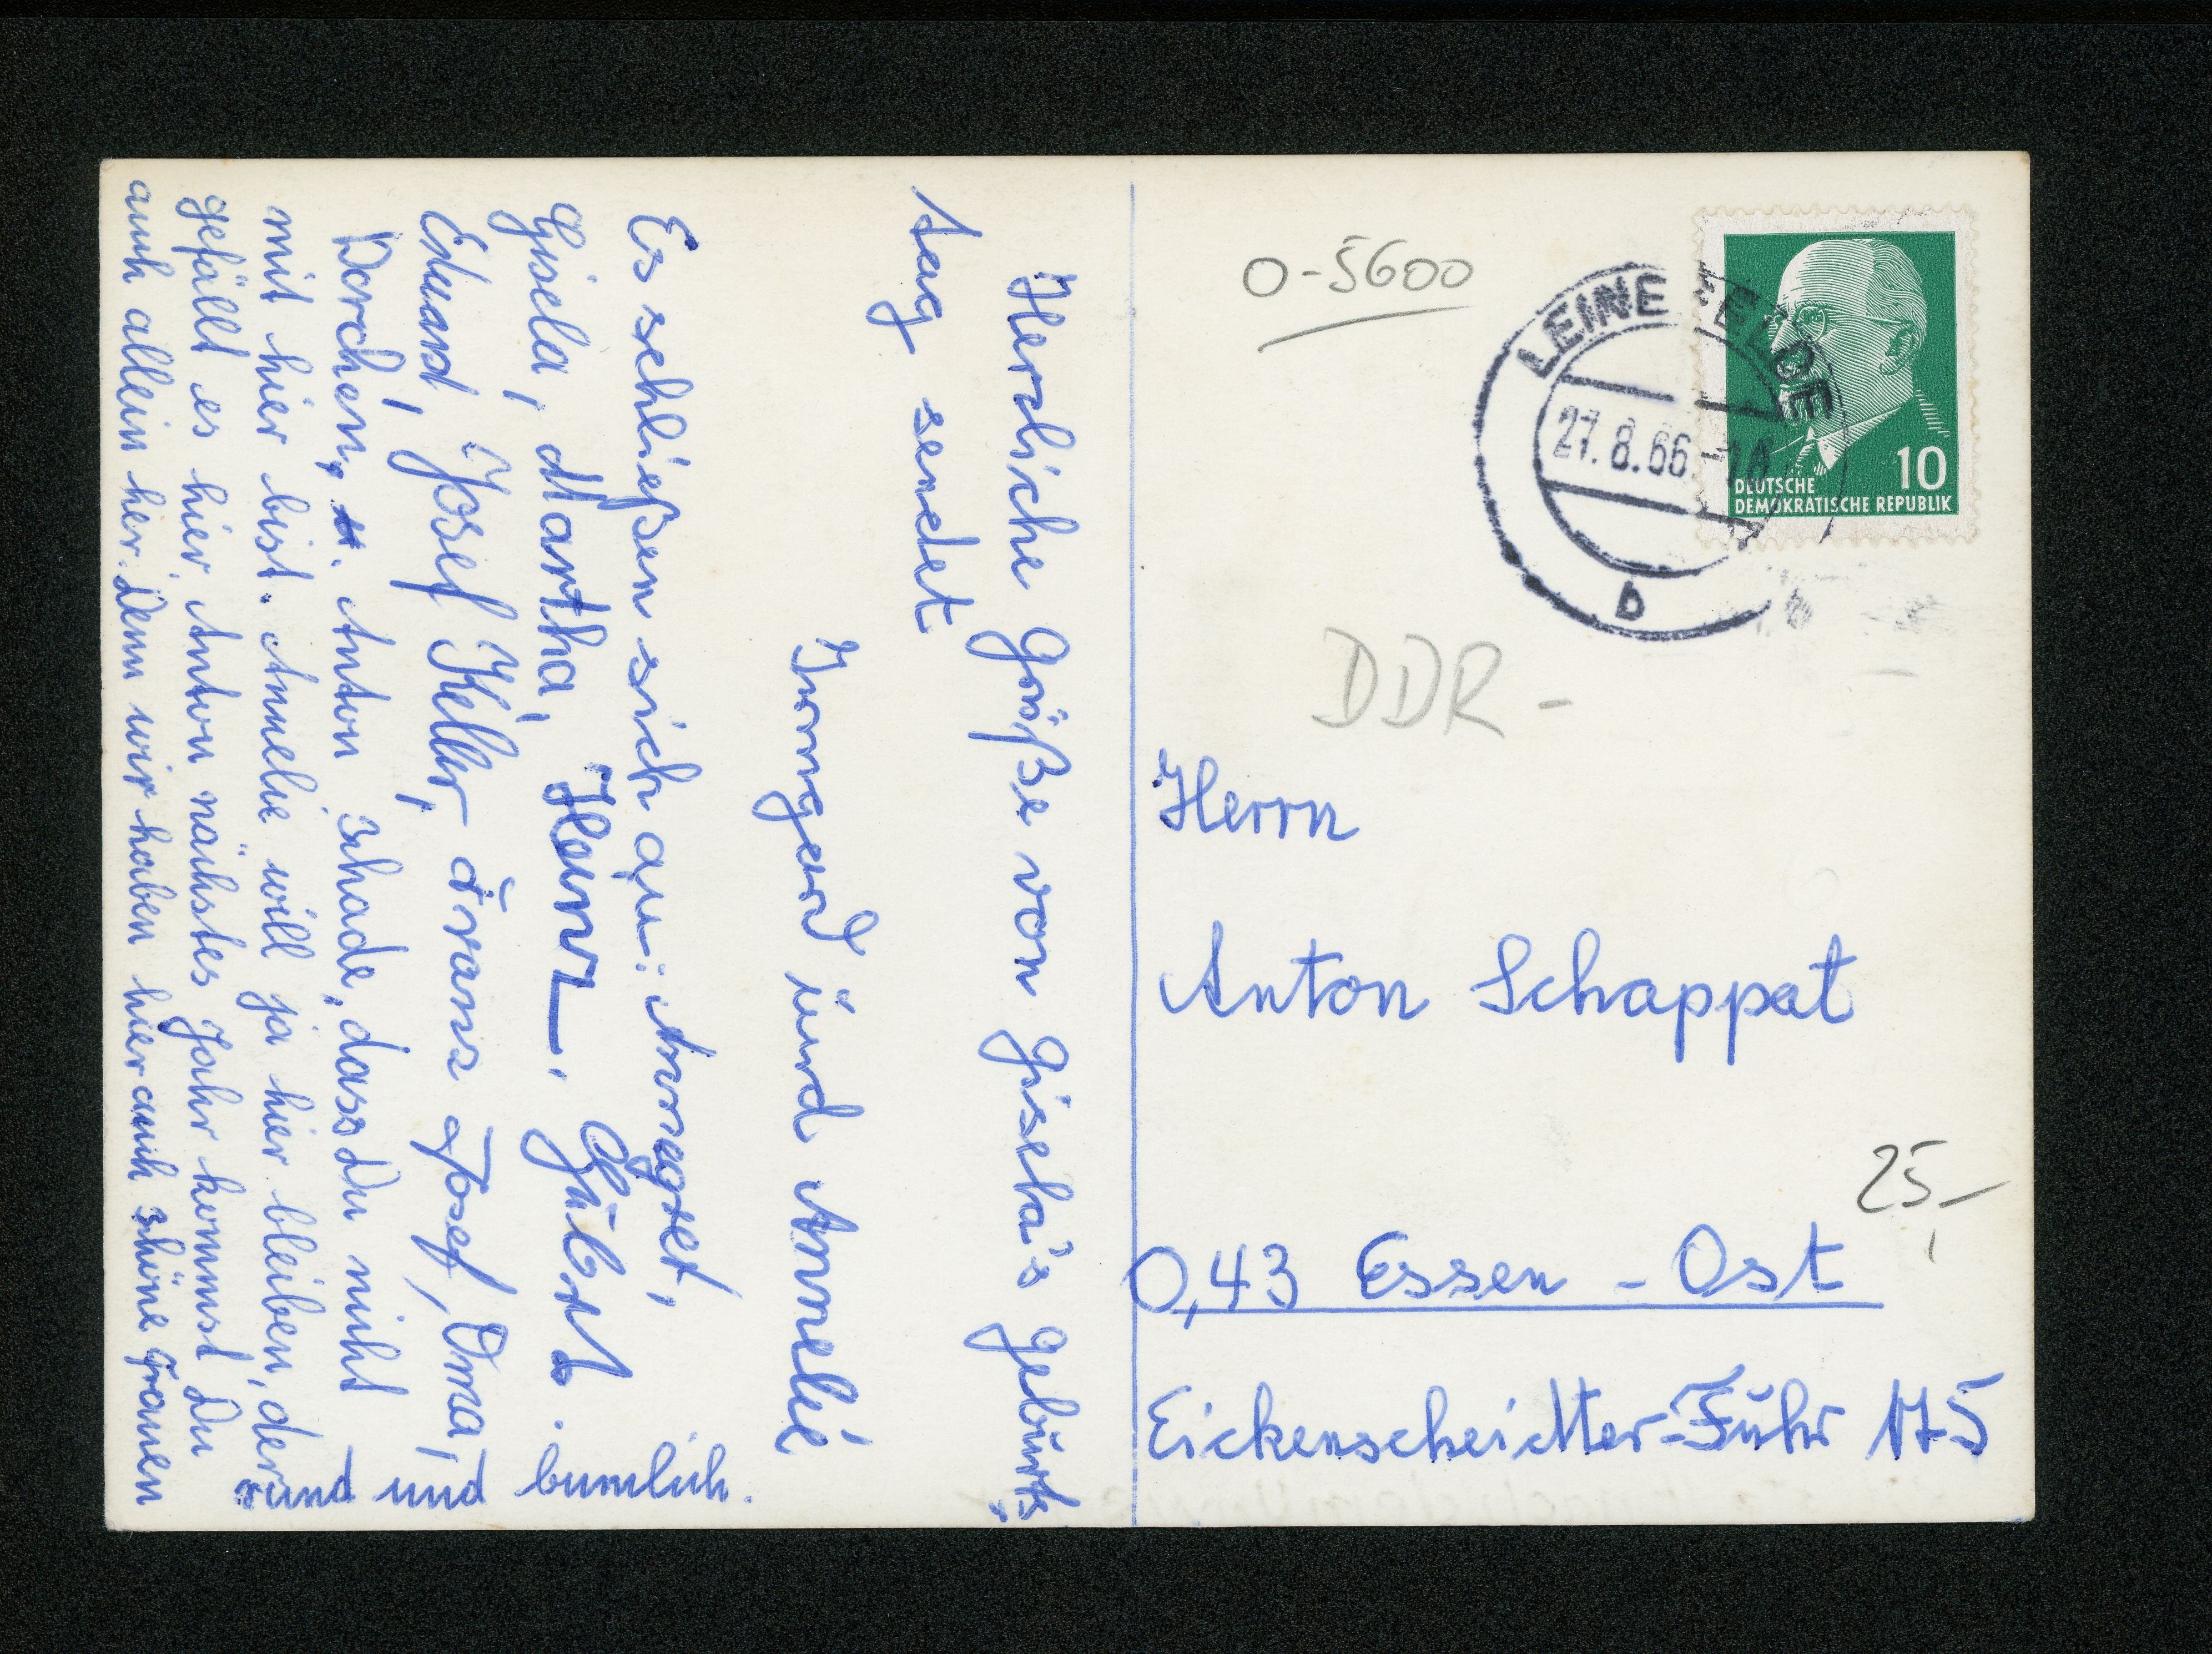 Herzliche Grüße von Gisela's Geburts-
tag sendet
Irmgard und Annelie
Es schließen sich an: Annegret,
Gisela, Martha, Heinz, 
Eduard, Josef Keller, Franz Josef, Oma,
Dorchen, u. Anton schade, dass Du nicht
mit hier bist. Annelie will ja hier bleiben, der
gefällt es hier. Anton nächstes Jahr kommst Du
auch allein her. Denn wir haben hier auch schöne Frauen
rund und bumlich.
O-5600
LEINEFELDE
27.8.66.-10
b
10
DEUTSCHE
DEMOKRATISCHE REPUBLIK
DDR-
Herrn
Anton Schappat
25,-
0,43 Essen - Ost
Eickenscheidter-Fuhr 175